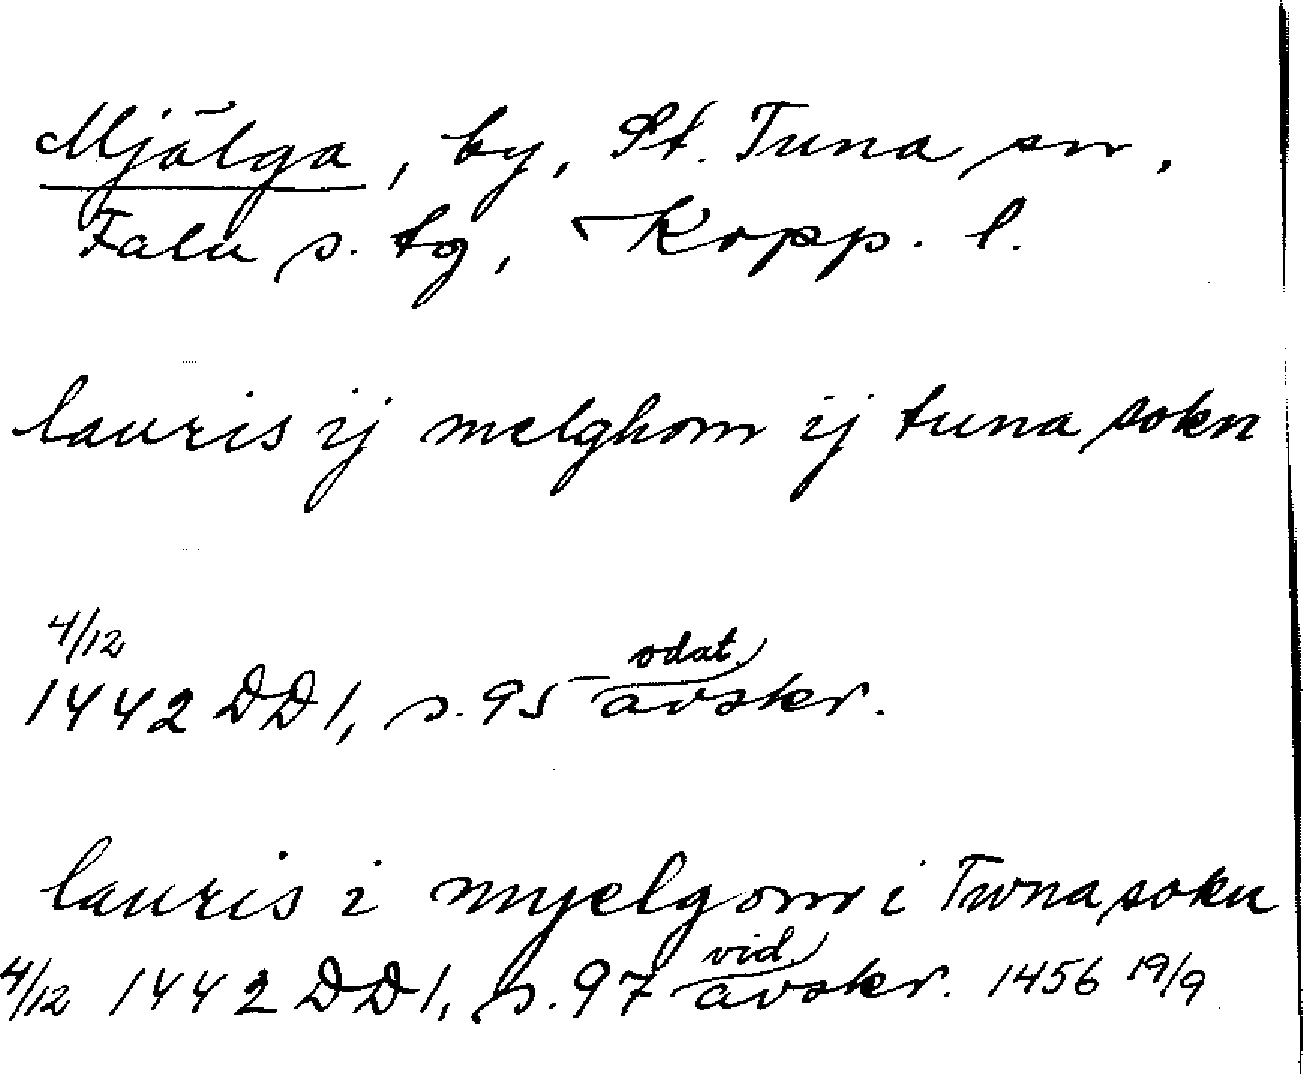 Mjälga, by, St. Tuna sn,
Falu s. tg, Kopp. l.
lauris ij melghom ij tuna sokn
4/12
odat.
1442 DD1, s. 95 avskr.
lauris i myelgom i Twna sokn
vid.
4/12 1442 DD1, s. 97 avskr. 1456 19/9